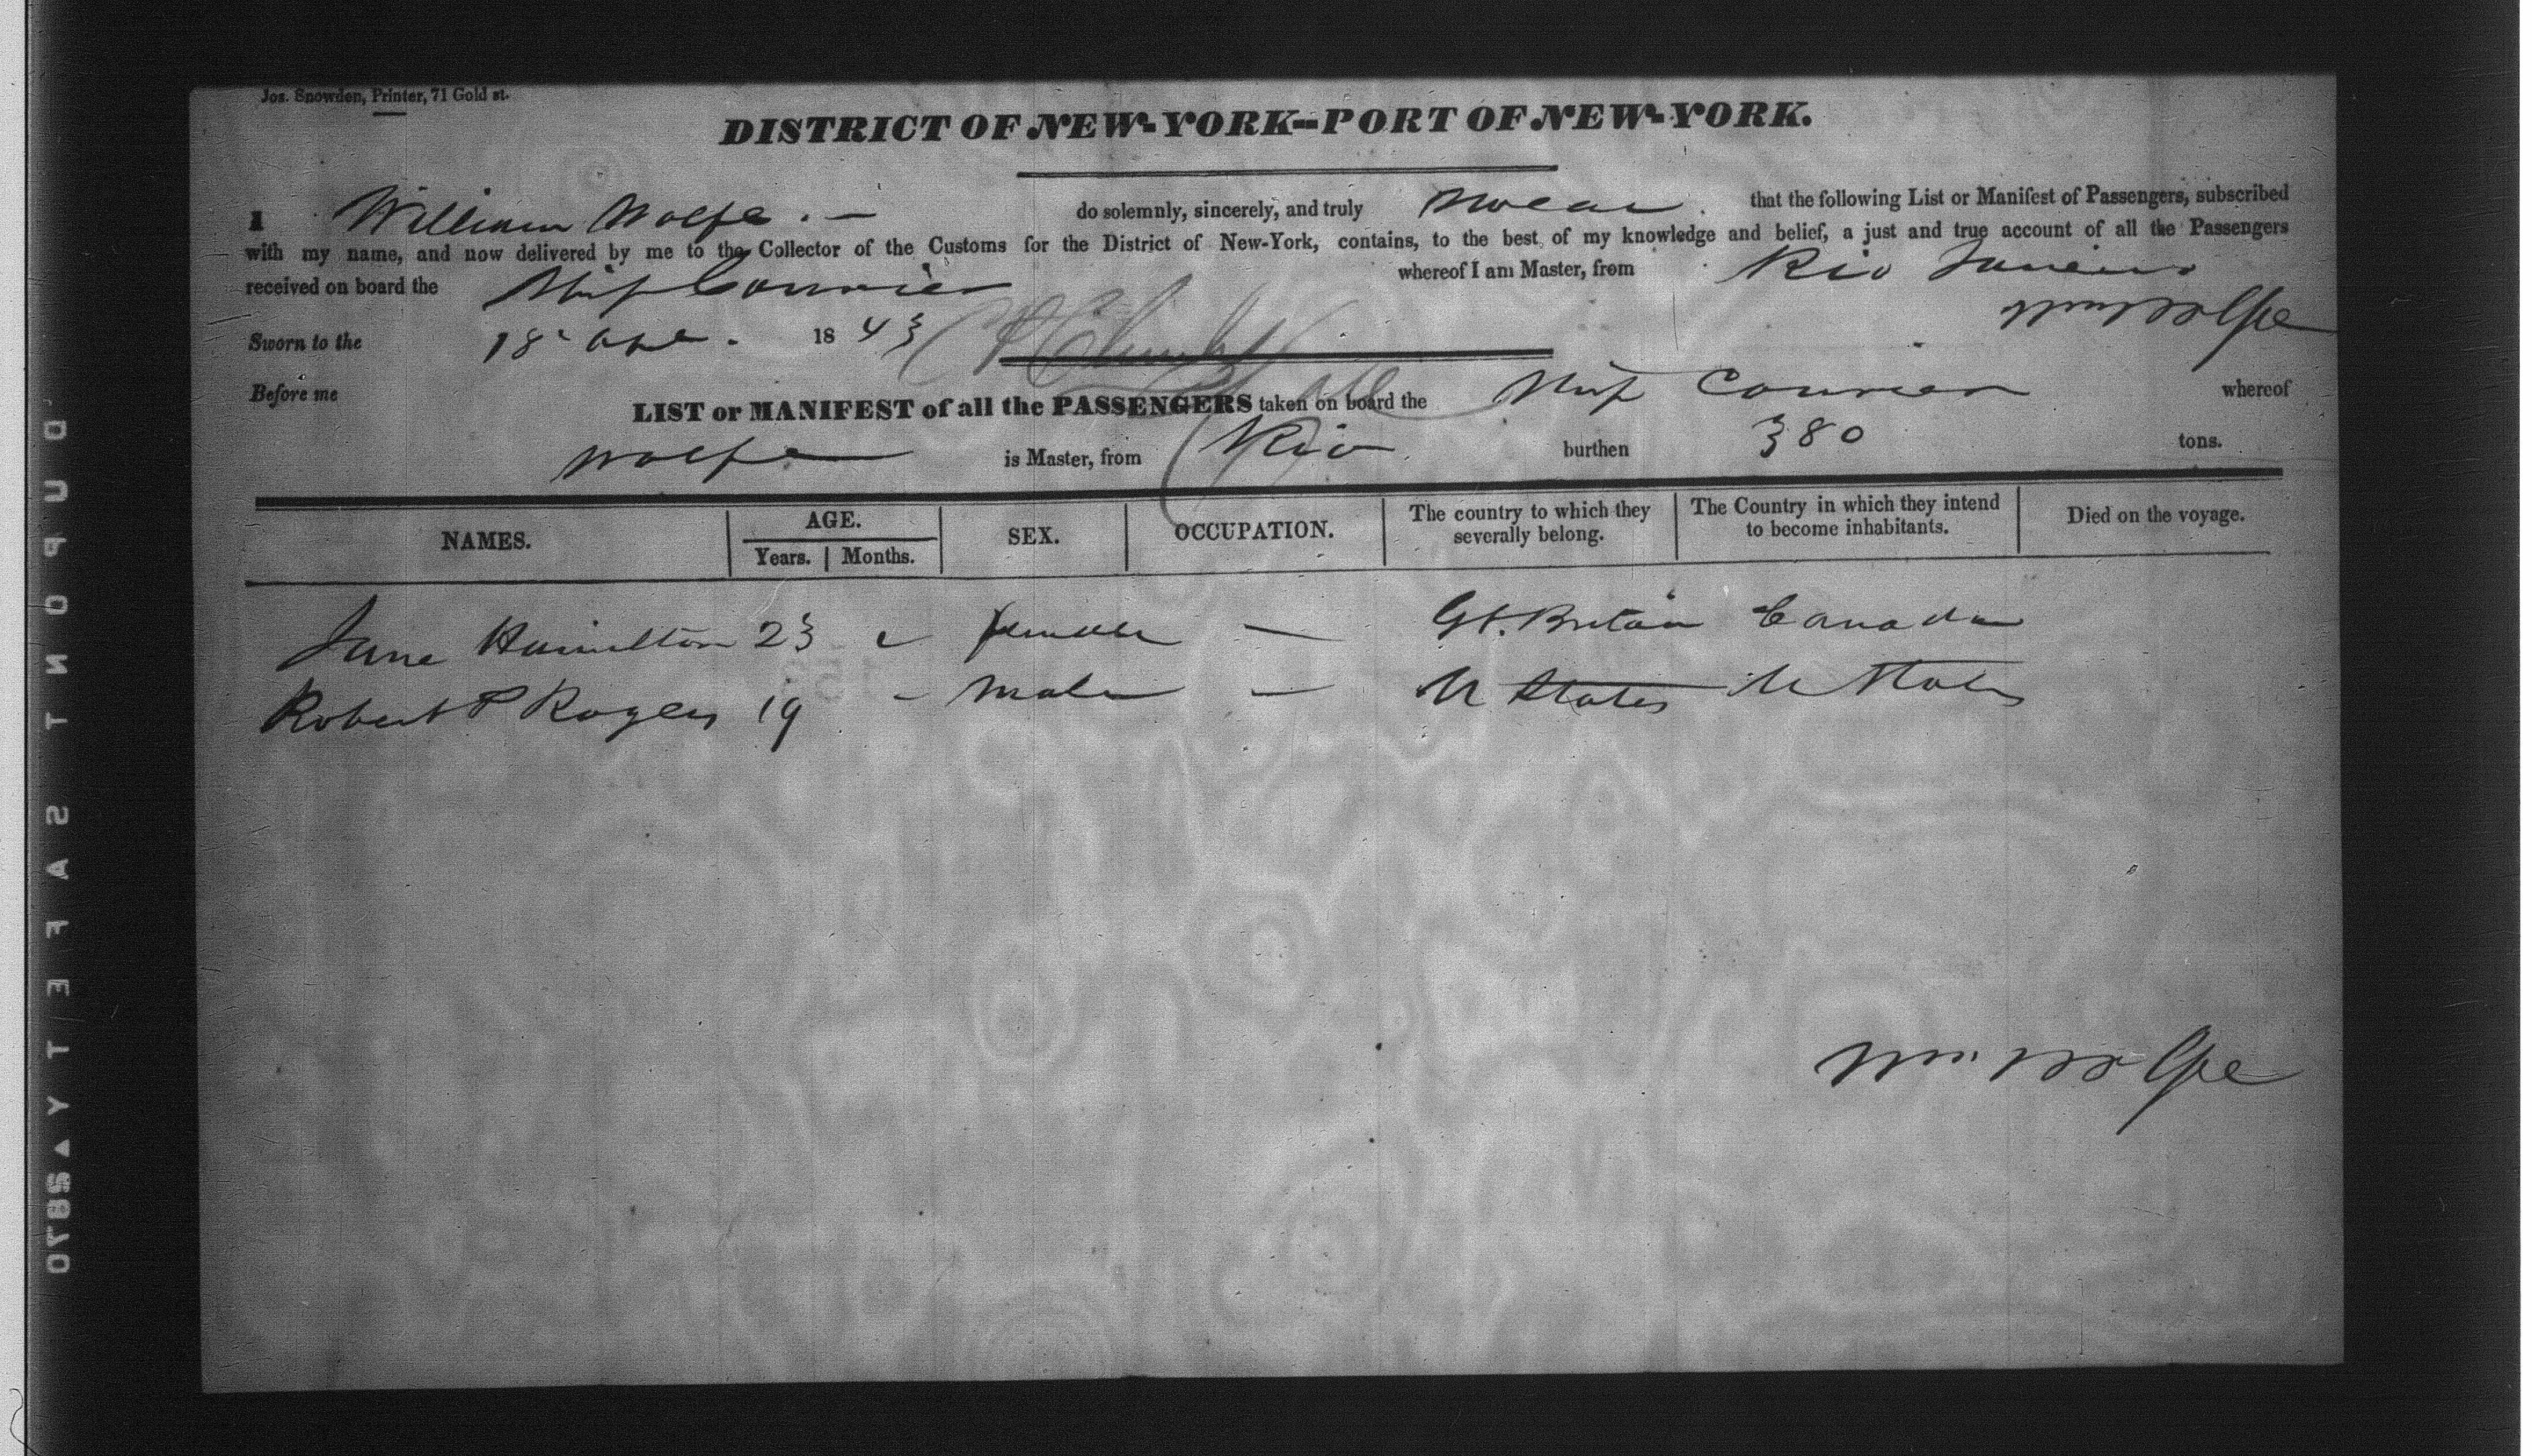 Jos. Snowden, Printer, 71 Gold st.
DISTRICT OF NEW-YORK--PORT OF NEW-YORK.
I William Wolfe. — do solemnly, sincerely, and truly swear that the following List or Manifest of Passengers, subscribed
with my name, and now delivered by me to the Collector of the Customs for the District of New-York, contains, to the best of my knowledge and belief, a just and true account of all the Passengers
received on board the Ship Courier whereof I am Master, from Rio Janeiro
Wm Wolfe
Sworn to the 18 Apl. 1843
Before me
LIST or MANIFEST of all the PASSENGERS taken on board the Ship Courier whereof
Wolfe is Master, from Rio burthen 380 tons.
NAMES. AGE. Years. Months. SEX. OCCUPATION. The country to which they severally belong. The Country in which they intend to become inhabitants. Died on the voyage.
Jane Hamilton 23 - female — Gt. Britain Canada
Robert P Rogers 19 - Male — U States U States
Wm. Wolfe
DUPONT SAFETY 2870